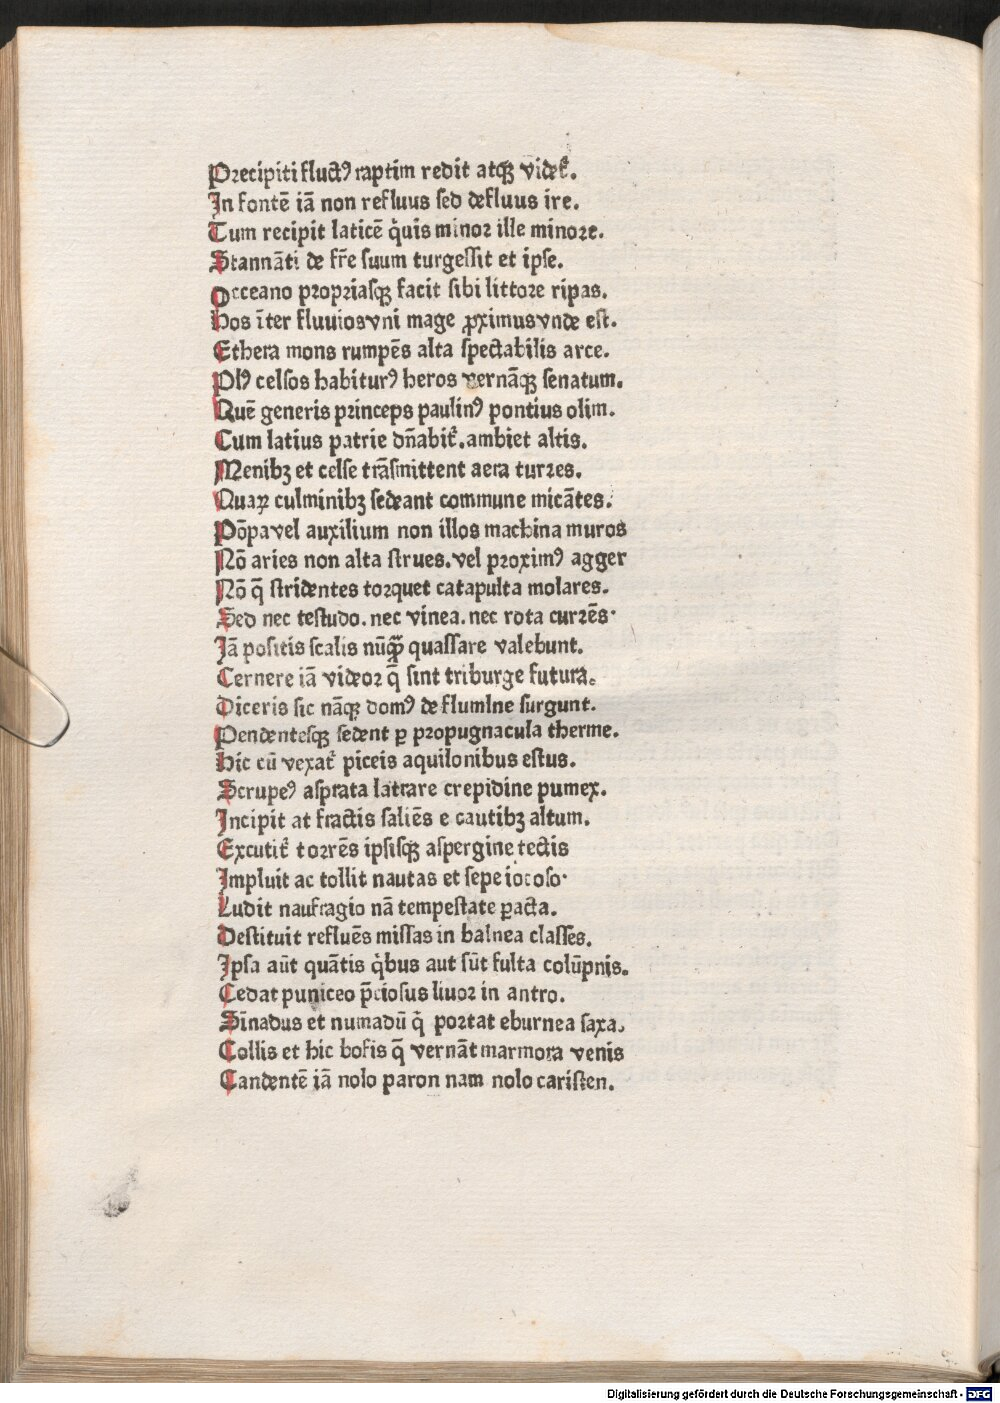 Precipiti fluctꝰ raptim redit atqꝫ videt᷑.
In fontē iā non refluus sed defluus ire.
Tum recipit laticē q̇uis minor ille minore.
Stannāti de fr̄e suum turgessit et ipse.
Occeano propriasqꝫ facit sibi littore ripas.
Hos īter fluuios vni mage ꝓximus vnde est.
Ethera mons rumpēs alta spectabilis arce.
Plꝰ celsos habiturꝰ heros vernāqꝫ senatum.
Quē generis princeps paulinꝰ pontius olim.
Cum latius patrie dn̄abit᷑. ambiet altis.
Menibꝫ et celse trāsmittent aera turres.
Quaꝝ culminibꝫ sedeant commune micātes.
Pōpa vel auxilium non illos machina muros
Nō aries non alta strues. vel proximꝰ agger
Nō q̄ stridentes torquet catapulta molares.
Sed nec testudo. nec vinea. nec rota currēs.
Iā positis scalis nūqꝫ̄ quassare valebunt.
Cernere iā videor q̄ sint tri burge futura.
Diceris sic nāqꝫ domꝰ de flumine surgunt.
Pendentesqꝫ sedent ꝑ propugnacula therme.
Hic cū vexat᷑ piceis aquilonibus estus.
Scrupeꝰ asprata latrare crepidine pumex.
Incipit at fractis saliēs e cautibꝫ altum.
Excutit᷑ torrēs ipsisqꝫ aspergine tectis
Impluit ac tollit nautas et sepe iocoso.
Ludit naufragio nā tempestate ꝑacta.
Destituit refluēs missas in balnea classes.
Ipsa aūt quātis q̇bus aut sūt fulta colūpnis.
Cedat puniceo p̄ciosus liuor in antro.
Sīnadus et numadū q̇ portat eburnea saxa.
Collis et hic bofis q̄ vernāt marmora venis
Candentē iā nolo paron nam nolo caristen.
Digitalisierung gefördert durch die Deutsche Forschungsgemeinschaft - DFG